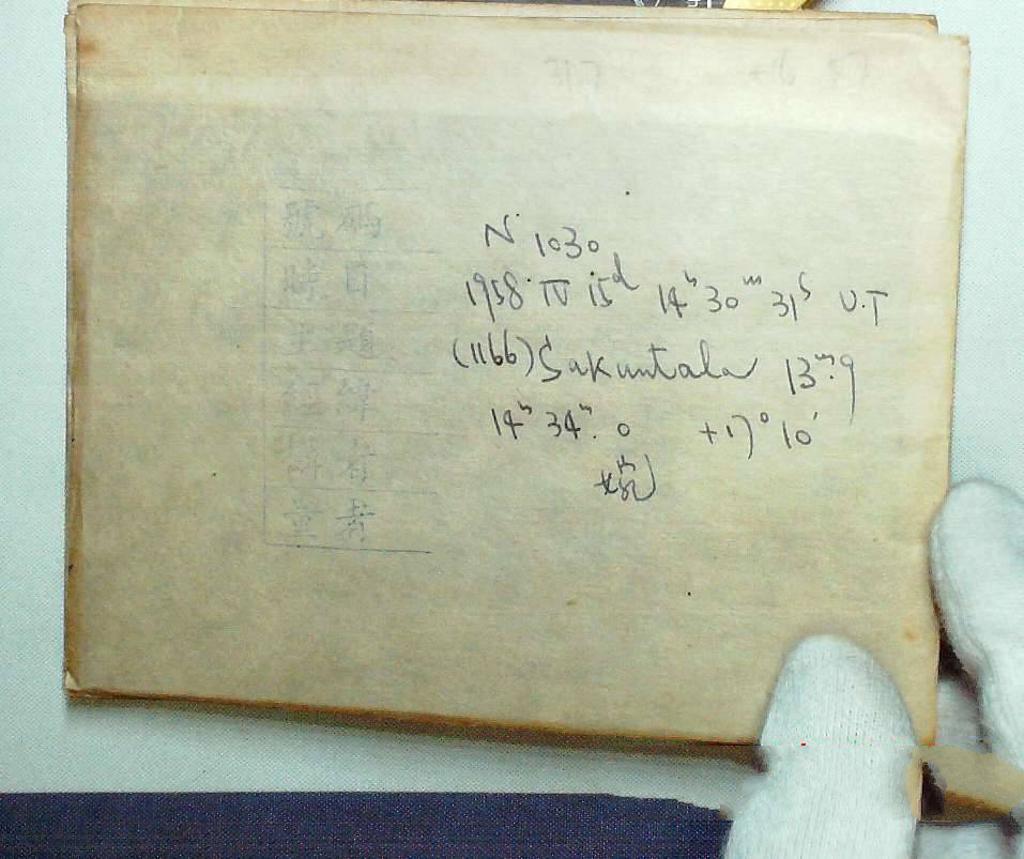 號碼
時日
主題
經緯
講有
量者
N 1030
1958 IV 15d 14h 30m 31s U.T
(1166) Sakuntala 13m.9
14h 34m.0 +17° 10'